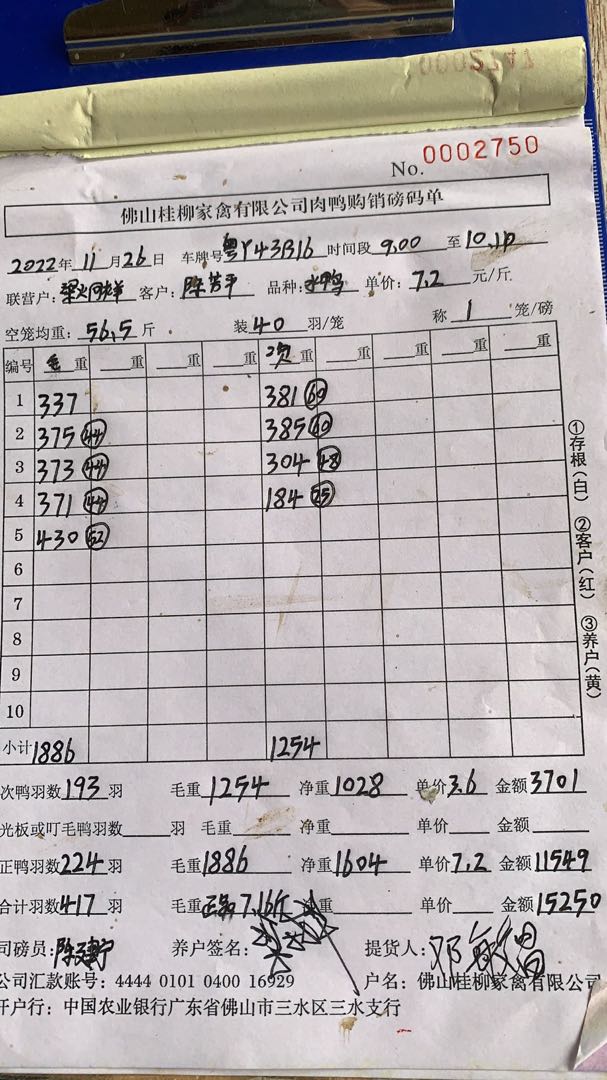 0002747
No. 0002750
佛山桂柳家禽有限公司肉鸭购销磅码单
2022年 11月26日 车牌号 粤Y43B16 时间段 9.00 至 10.10
联营户: 客户: 陈芳平 品种: 水鸭 单价: 7.2 元/斤
空笼均重: 56.5 斤 装 40 羽/笼 称 1 笼/磅
编号 毛重 重 重 重 次重 重 重 重
1 337 381 60
2 375 44 385 60
3 373 44 304 48
4 371 44 184 25
5 430 52
6
7
8
9
10
小计 1886 1254
次鸭羽数 193 羽 毛重 1254 净重 1028 单价 3.6 金额 3701
光板或叮毛鸭羽数 羽 毛重 净重 单价 金额
正鸭羽数 224 羽 毛重 1886 净重 1604 单价 7.2 金额 11549
合计羽数 417 羽 毛重 7.16斤 净重 单价 金额 15250
司磅员: 养户签名: 提货人: 邓敏昌
公司汇款账号: 4444 0101 0400 16929 户名: 佛山桂柳家禽有限公司
开户行: 中国农业银行广东省佛山市三水区三水支行
①存根(白) ②客户(红) ③养户(黄)